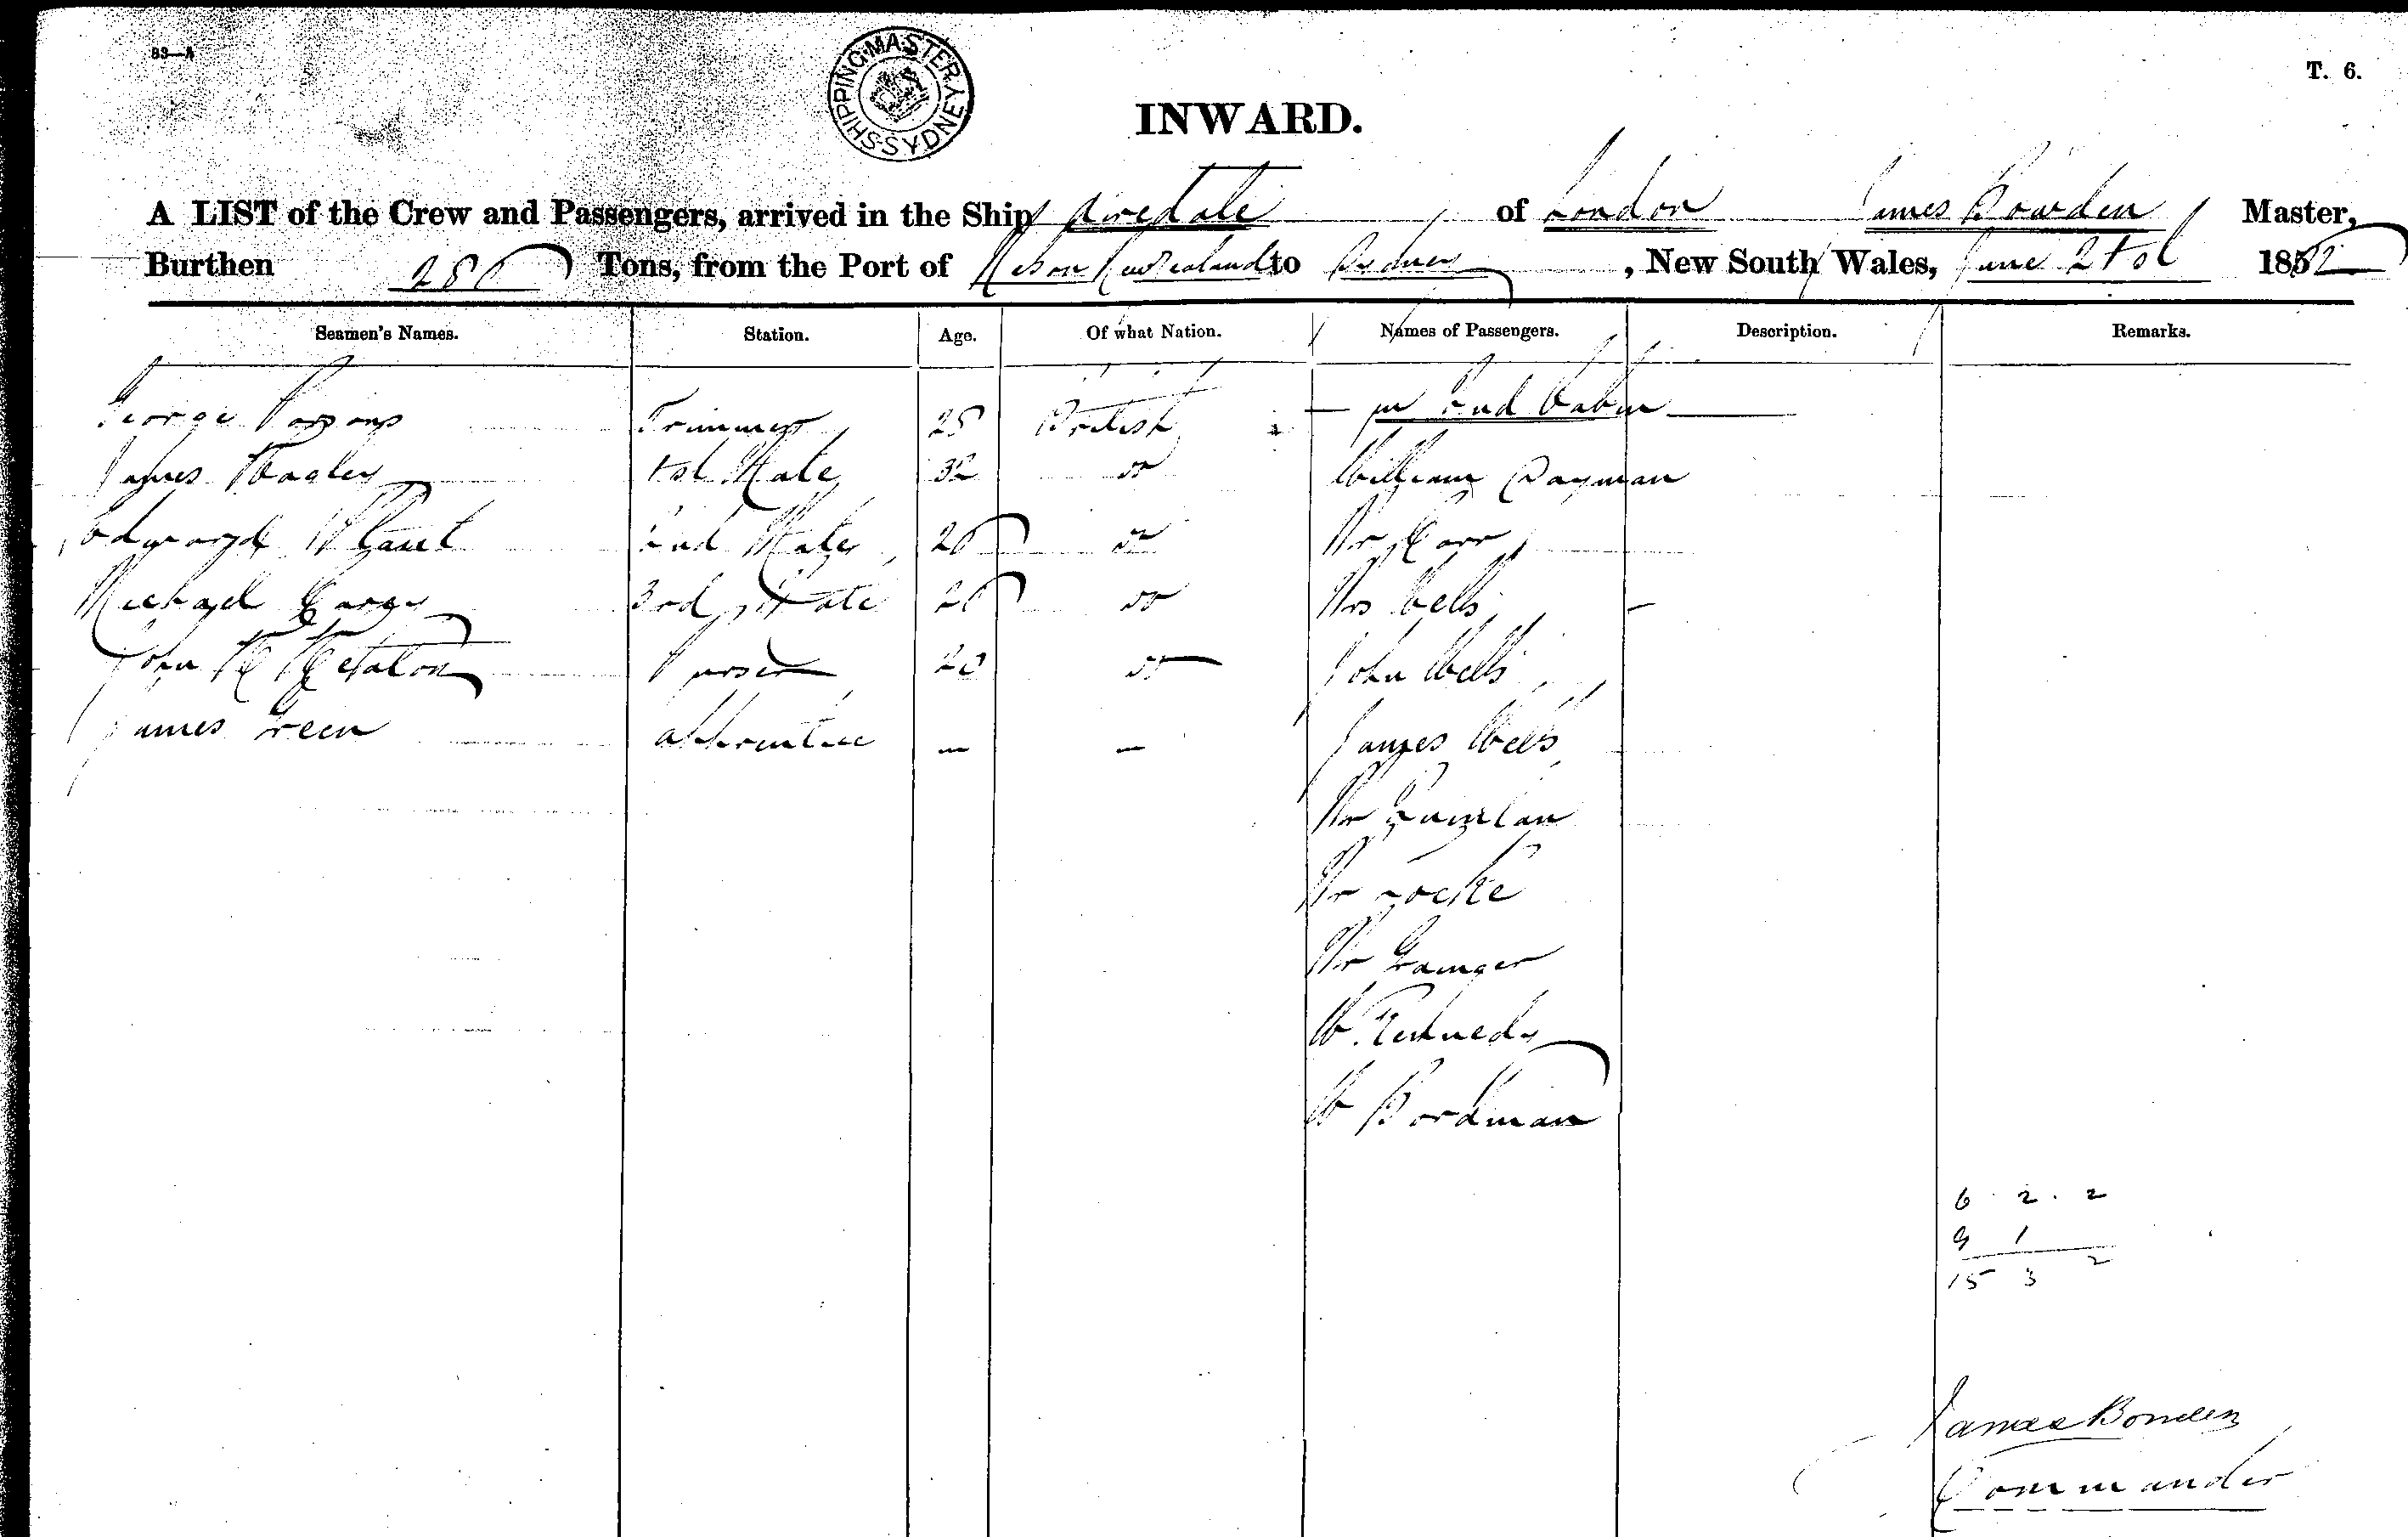 83—A
SHIPPING MASTER SYDNEY
T. 6.
INWARD.
A LIST of the Crew and Passengers, arrived in the Ship Airedale of London James Bowden Master,
Burthen 286 Tons, from the Port of Nelson New Zealand to Sydney, New South Wales, June 21st 185
Seamen's Names. Station. Age. Of what Nation. Names of Passengers. Description. Remarks.
George Parsons Trimmer 25 British 2nd Cabin
James 1st Mate 32 Do William Dayman
Edward 2nd Mate 26 Do Mr Carr
Michael Carey 3rd Mate 26 Do Mrs Wells
John Purser 20 Do John Wells
James Green apprentice — — James Wells
Mr Quinlan
Mr Locke
Mr Grainger
W. Kennedy
W Bordman
6 . 2 . 2
9 1
15 3 2
James Bowden
Commander